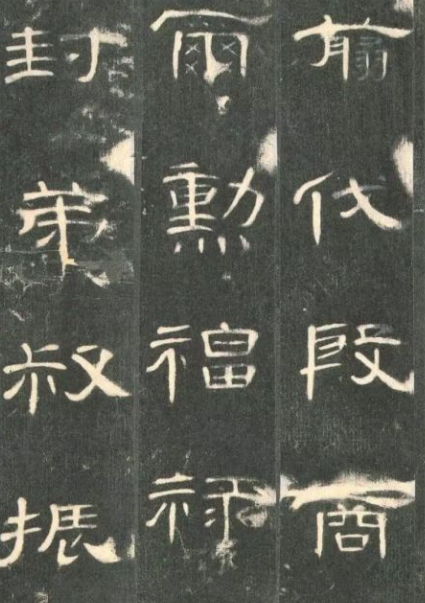 翦伐殷商
爾勳福祿
封弟叔振